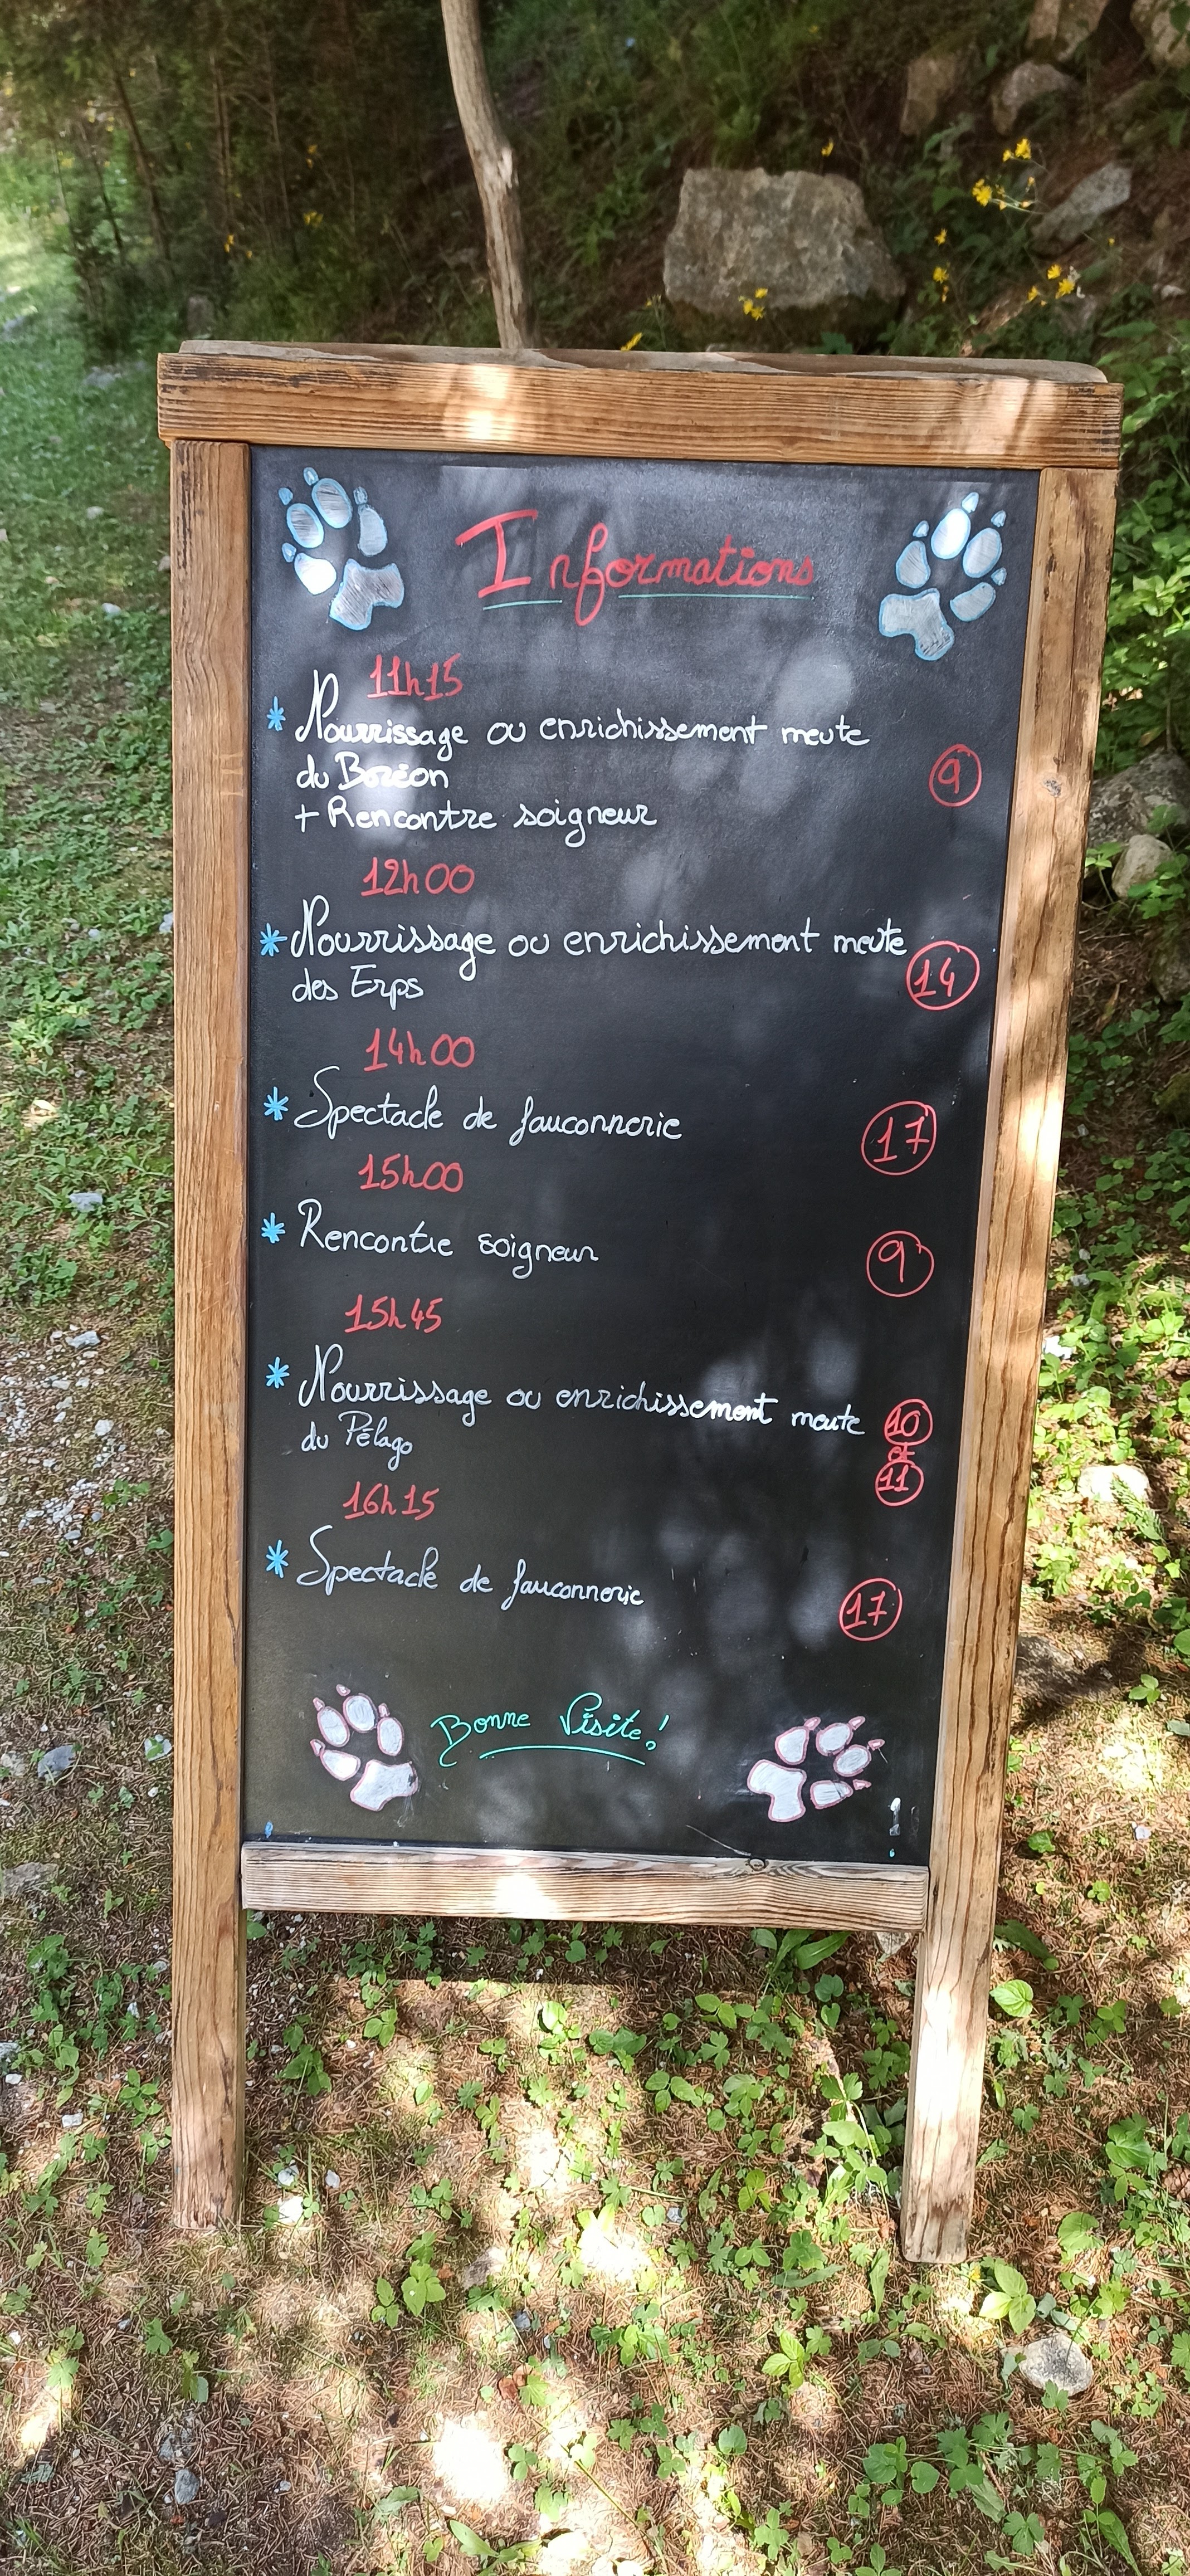 Informations
11h15
* Nourrissage ou enrichissement meute
du Boréon
+ Rencontre soigneur
9
12h00
* Nourrissage ou enrichissement meute
des Erps
14
14h00
* Spectacle de fauconnerie
17
15h00
* Rencontre soigneur
9
15h45
* Nourrissage ou enrichissement meute
du Pélago
10
et
11
16h15
* Spectacle de fauconnerie
17
Bonne Visite!